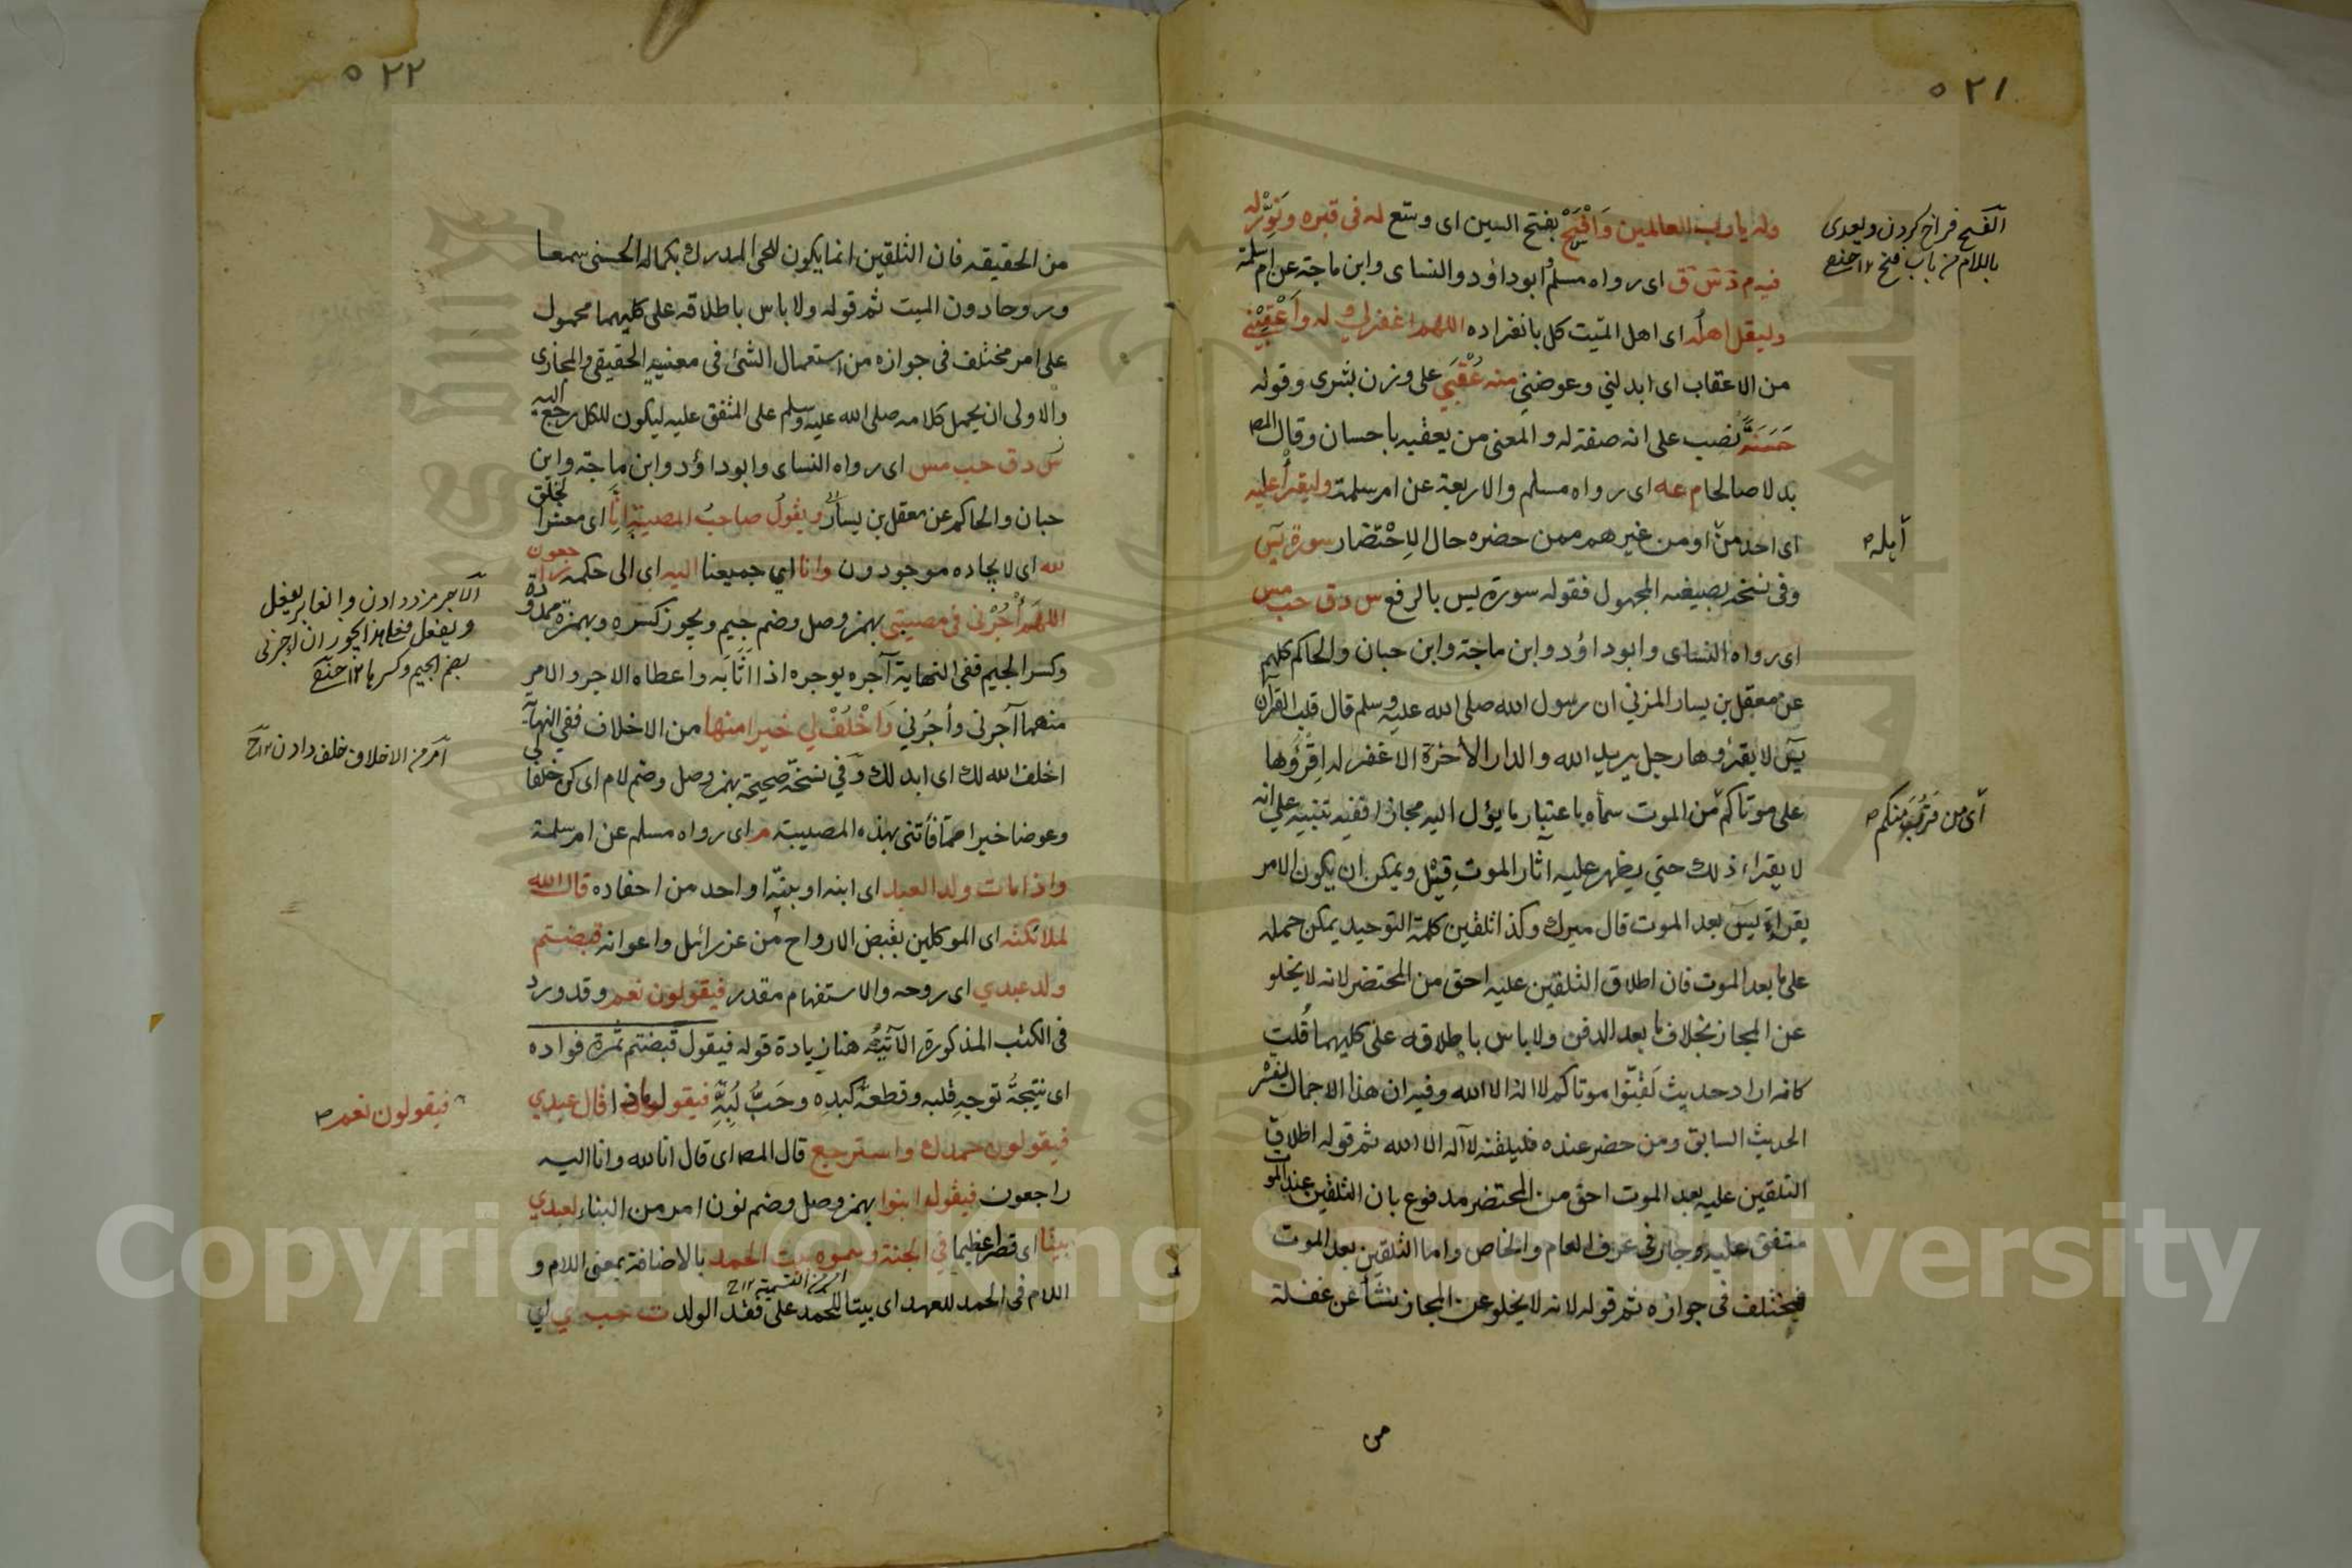 ٥٢١
وله يا رب العالمين وَافْسَحْ بفتح السين اى وسّع له فى قبره ونَوِّرْ له
فيه م د س ق اى رواه مسلم وابو داؤد والنساى وابن ماجة عن ام سلمة
وليقل اهله اى اهل الميّت كل بانفراده اللهم اغفر لي وله وَأَعْقِبْنِي
من الاعقاب اى ابدلني وعوضني منه عُقْبَي على وزن بشرى وقوله
حَسَنَةً نصب على انه صفة له والمعنى من يعقبه باحسان وقال المص
بدلا صالحا م عه اى رواه مسلم والاربعة عن ام سلمة وليقرأ عليه
اى احد من او من غيرهم ممن حضره حال الاِحْتضار سورة يٓس
وفى نسخة بصيغة المجهول فقوله سورة يس بالرفع س د ق حب مس
اى رواه النساى وابو داؤد وابن ماجة وابن حبان والحاكم كلهم
عن معقل بن يسار المزني ان رسول الله صلى الله عليه وسلم قال قلب القرآن
يٓس لا يقرؤها رجل يريد الله والدار الآخرة الا غفر له اقرؤها
على موتاكم من الموت سماه باعتبار ما يؤل اليه مجازا ففيه تنبيه على انه
لا يقراء ذلك حتي يظهر عليه آثار الموت قيل ويمكن ان يكون الامر
بقراءة يس بعد الموت قال ميرك وكذا تلقين كلمة التوحيد يمكن حمله
على ما بعد الموت فان اطلاق التلقين عليه احق من المحتضر لانه لا يخلو
عن المجاز بخلاف ما بعد الدفن ولا باس باطلاقه على كليهما قُلت
كانه اراد حديث لَقِّنُوا موتاكم لا اله الا الله وفيه ان هذا الاجمال يفسّر
الحديث السابق ومن حضر عنده فليلقنه لا آله الا الله ثم قوله اطلاق
التلقين عليه بعد الموت احق من المحتضر مدفوع بان التلقين عند الموت
متفق عليه وجار فى عرف العام والخاص واما التلقين بعد الموت
فمختلف فى جوازه ثم قوله لانه لا يخلو عن المجاز نشأ عن غفلة
من
الفسح فراخ كردن ويعدى
باللام من باب فتح ١٢
أهله
أى من قَرُبَ منكم
٥٢٢
من الحقيقه فان التلقين انما يكون للحى المدرك بكماله الحسنى سمعا
وروحا دون الميت ثم قوله ولا باس باطلاقه على كليهما محمول
على امر مختلف فى جوازه من استعمال الشئ فى معنييه الحقيقي والمجازى
والاولى ان يحمل كلامه صلى الله عليه وسلم على المتفق عليه ليكون للكل رجع اليه
س د ق حب مس اى رواه النساى وابو داؤد وابن ماجة وابن
حبان والحاكم عن معقل بن يسار ويقولُ صاحبُ المصيبة إنَّا اى معشر الخلق
لله اى لايجاده موجودون وانا اي جميعنا اليه اى الى حكمه راجعون
اللهم أْجُرْنى فى مصيبتى بهمز وصل وضم جيم ويجوز كسره وبهمزة ممدودة
وكسر الجيم ففى النهاية آجره يوجره اذا اثابه واعطاه الاجر والامر
منهما آجرنى وأجُرني وَاَخْلُفْ لي خيرا منها من الاخلاف ففى النهاية
اخلف الله لك اى ابدلك وفي نسخة صحيحة بهمز وصل وضم لام اى كن لى خلفا
وعوضا خيرا مما فاتنى بهذه المصيبة م اى رواه مسلم عن ام سلمة
واذا مات ولد العبد اى ابنه او بنته او احد من احفاده قال الله
لملائكته اى الموكلين بقبض الارواح من عزرائيل واعوانه قبضتم
ولد عبدي اى روحه والاستفهام مقدر فيقولون نعم وقد ورد
فى الكتب المذكورة الآتية هنا زيادة قوله فيقول قبضتم ثمرة فواده
اى نتيجة توجه قلبه وقطعة كبده وحَبُّ لُبِّهِ فيقول ماذا قال عبدي
فيقولون حمدك واسترجع قال المص اى قال انا لله وانا اليه
راجعون فيقول ابنوا بهمز وصل وضم نون امر من البناء لعبدي
بيتا اى قصرا عظيما فى الجنة وسموه بيت الحمد بالاضافة بمعنى اللام و
اللام فى الحمد للعهد اى بيتا للحمد على فقد الولد ت حب ي اي
امر من التسمية ١٢
و يفعل فعلى هذا يجوز ان اجرنى
بضم الجيم وكسرها ١٢
امر من الاخلاف خلف دادن ١٢
فيقولون نعم
Copyright © King Saud University